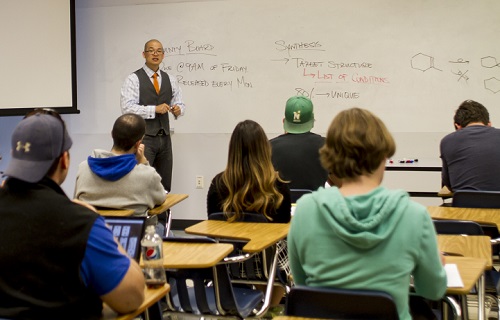 Board
@9AM of Friday
Released Every Mon
Synthesis
→ Target Structure
↳ List of Conditions
80% → Unique
N